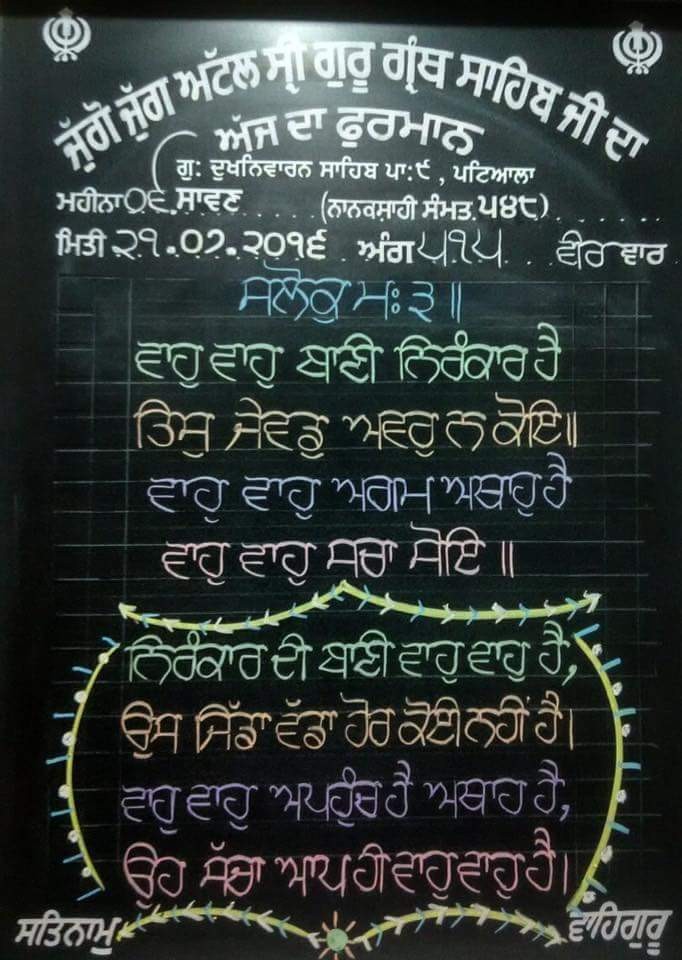 ਜੁੱਗੋ ਜੁੱਗ ਅਟੱਲ ਸ੍ਰੀ ਗੁਰੂ ਗ੍ਰੰਥ ਸਾਹਿਬ ਜੀ ਦਾ
ਅੱਜ ਦਾ ਫੁਰਮਾਨ
ਗੁ: ਦੁਖਨਿਵਾਰਨ ਸਾਹਿਬ ਪਾ:੯ , ਪਟਿਆਲਾ
ਮਹੀਨਾ ੦੬ ਸਾਵਣ (ਨਾਨਕਸ਼ਾਹੀ ਸੰਮਤ ੫੪੮)
ਮਿਤੀ ੨੧.੦੭.੨੦੧੬ ਅੰਗ ੫੧੫ ਵੀਰ ਵਾਰ
ਸਲੋਕੁ ਮਃ ੩ ॥
ਵਾਹੁ ਵਾਹੁ ਬਾਣੀ ਨਿਰੰਕਾਰ ਹੈ
ਤਿਸੁ ਜੇਵਡੁ ਅਵਰੁ ਨ ਕੋਇ॥
ਵਾਹੁ ਵਾਹੁ ਅਗਮ ਅਥਾਹੁ ਹੈ
ਵਾਹੁ ਵਾਹੁ ਸਚਾ ਸੋਇ ॥
ਨਿਰੰਕਾਰ ਦੀ ਬਾਣੀ ਵਾਹੁ ਵਾਹੁ ਹੈ,
ਉਸ ਜਿੱਡਾ ਵੱਡਾ ਹੋਰ ਕੋਈ ਨਹੀਂ ਹੈ।
ਵਾਹੁ ਵਾਹੁ ਅਪਹੁੰਚ ਹੈ ਅਥਾਹ ਹੈ,
ਉਹ ਸੱਚਾ ਆਪ ਹੀ ਵਾਹੁ ਵਾਹੁ ਹੈ।
ਸਤਿਨਾਮੁ ਵਾਹਿਗੁਰੂ